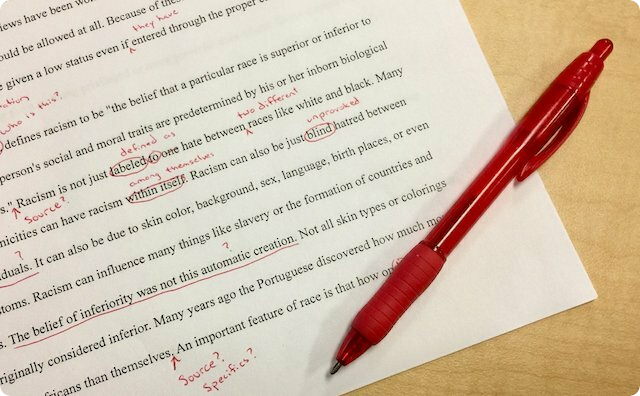 iews have been wo
ould be allowed at all. Because of thes
they have
e given a low status even if entered through the proper c
Who is this?
defines racism to be "the belief that a particular race is superior or inferior to
person's social and moral traits are predetermined by his or her inborn biological
defined as
two different
unprovoked
s." Racism is not just labeled to one hate between races like white and black. Many
Source?
among themselves
nicities can have racism within itself. Racism can also be just blind hatred between
?
iduals. It can also be due to skin color, background, sex, language, birth places, or even
stoms. Racism can influence many things like slavery or the formation of countries and
?
s. The belief of inferiority was not this automatic creation. Not all skin types or colorings
originally considered inferior. Many years ago the Portuguese discovered how much mo
fricans than themselves. An important feature of race is that how on
Source?
Specifics?